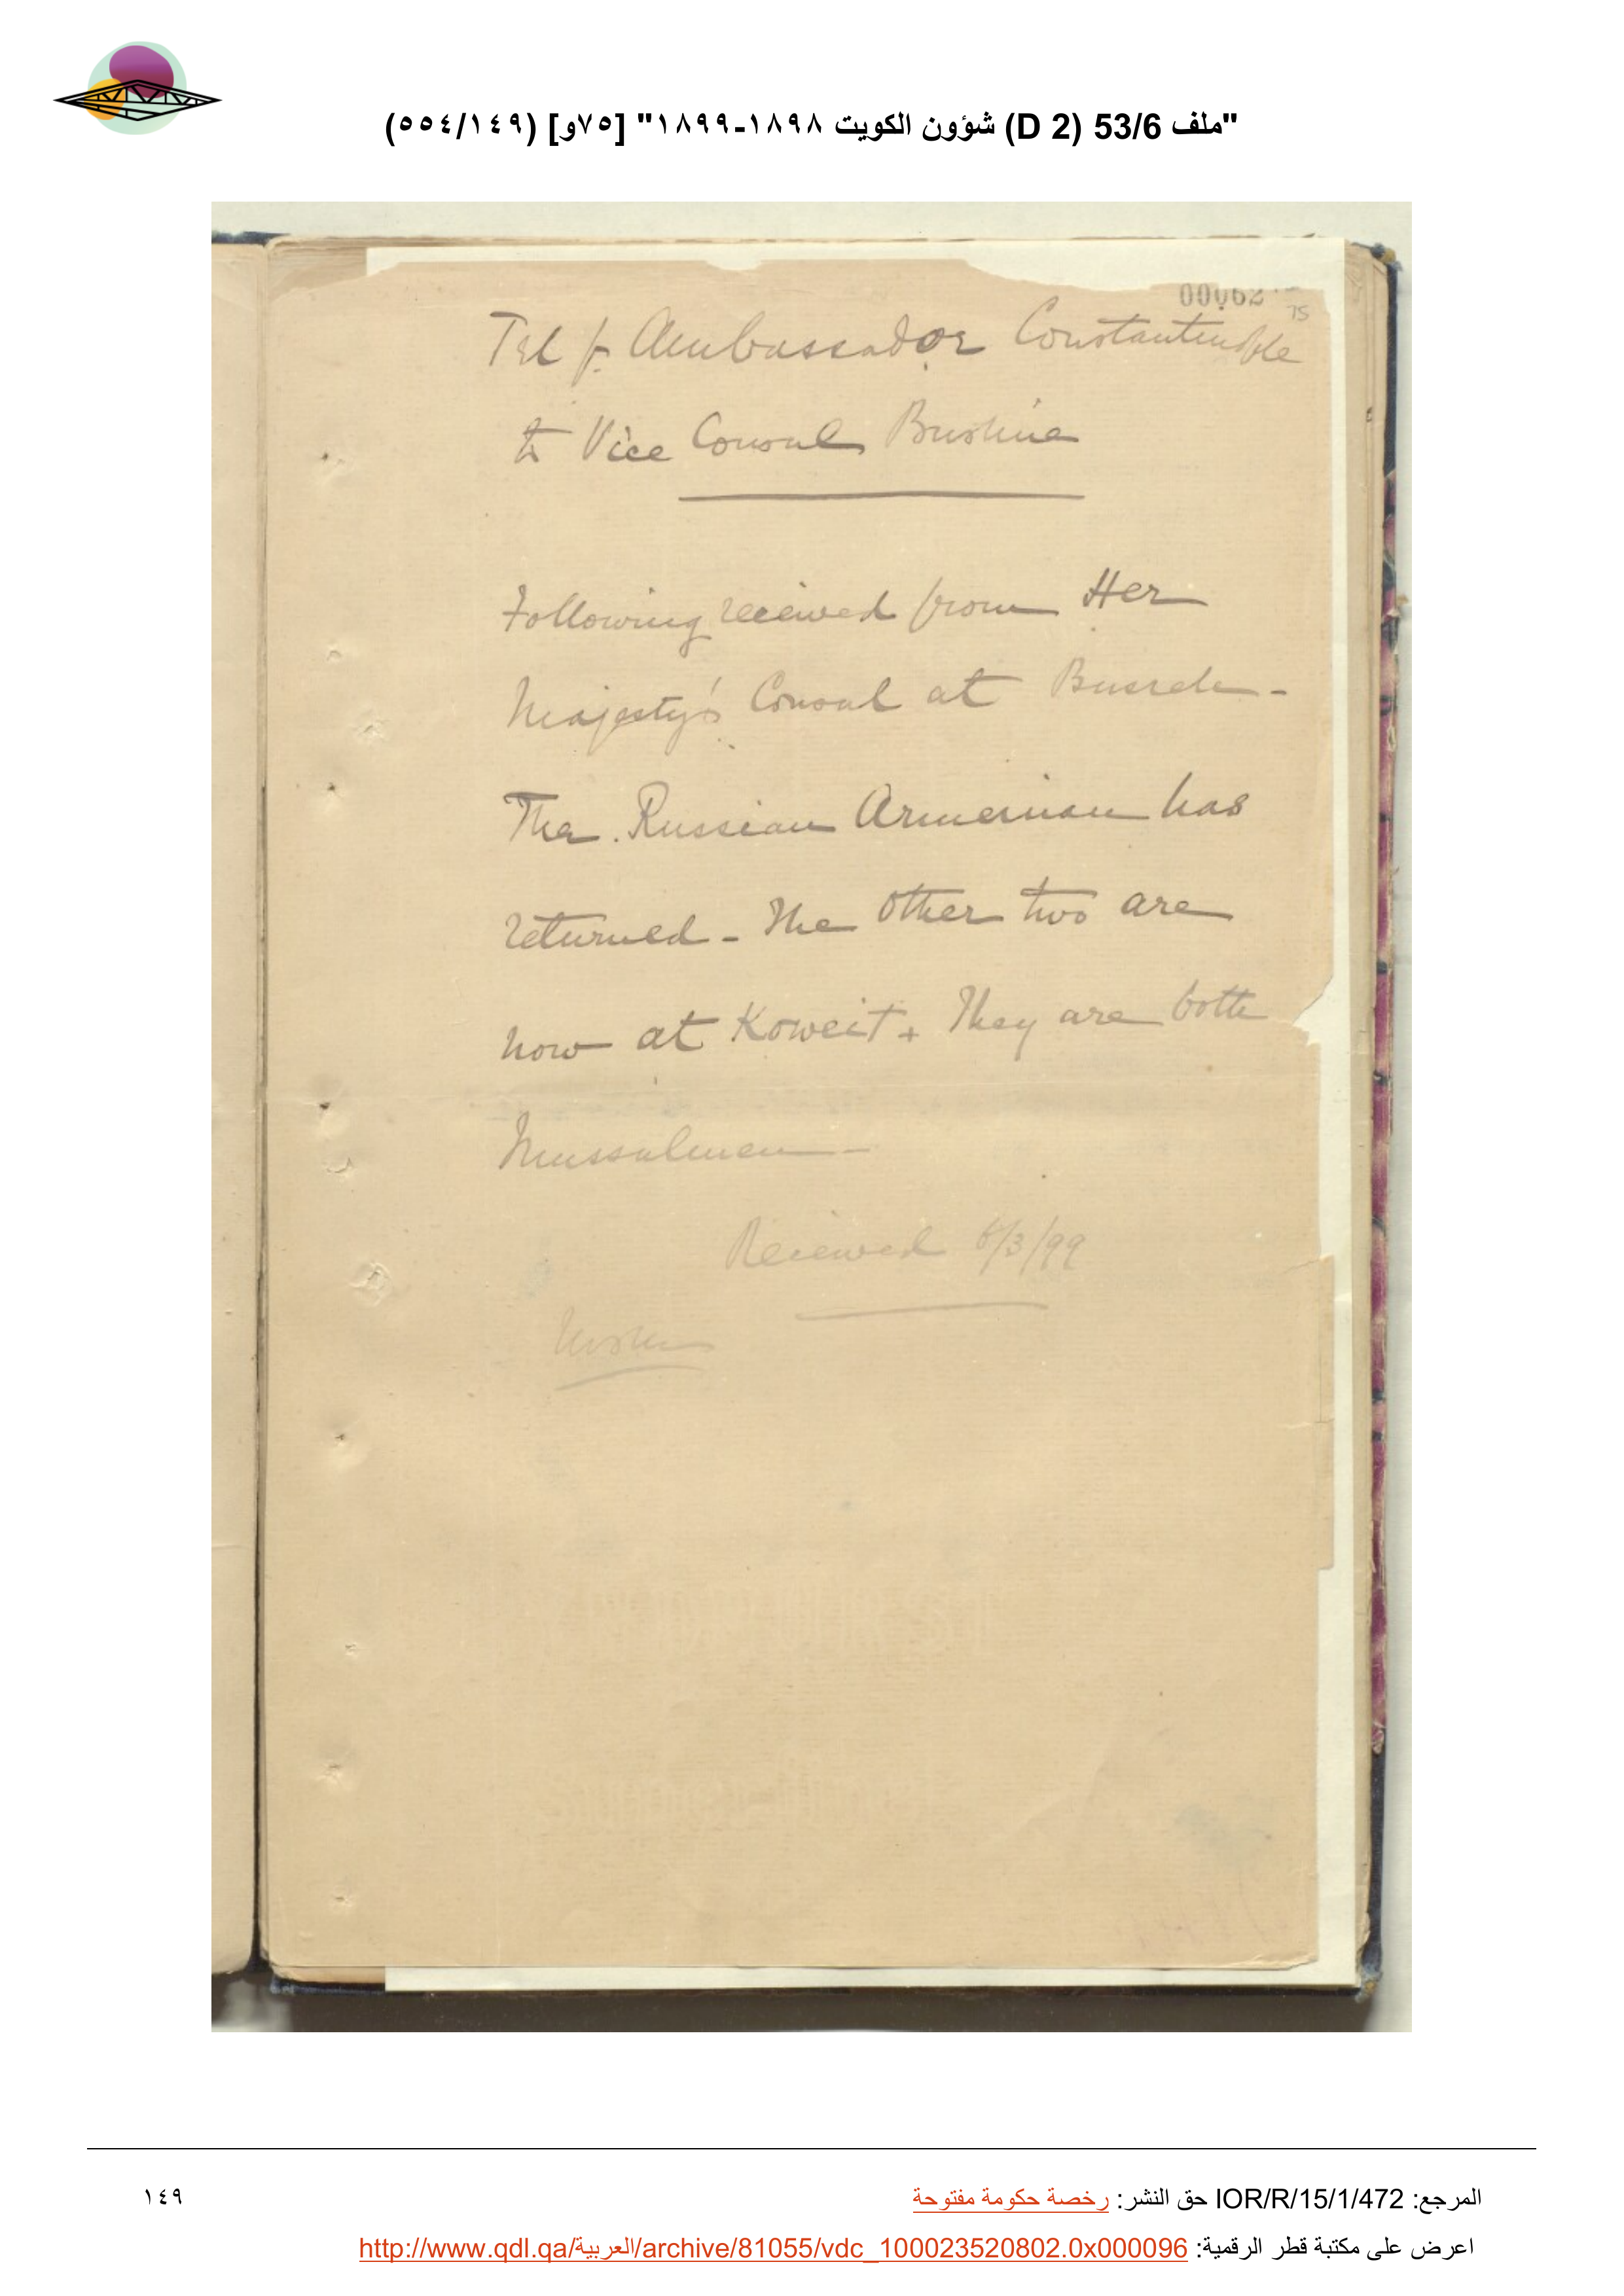 "ملف 53/6 (D 2) شؤون الكويت ١٨٩٨-١٨٩٩" [٧٥و] (٥٥٤/١٤٩)
00062
75
Tel f. Ambassador Constantinople
to Vice Consul Bushire
Following received from Her
Majesty's Consul at Busreh -
The Russian Armenian has
returned - The other two are
now at Koweit + They are both
Mussulmen -
Received 6/3/99
المرجع: IOR/R/15/1/472 حق النشر: رخصة حكومة مفتوحة
١٤٩
اعرض على مكتبة قطر الرقمية: http://www.qdl.qa/العربية/archive/81055/vdc_100023520802.0x000096